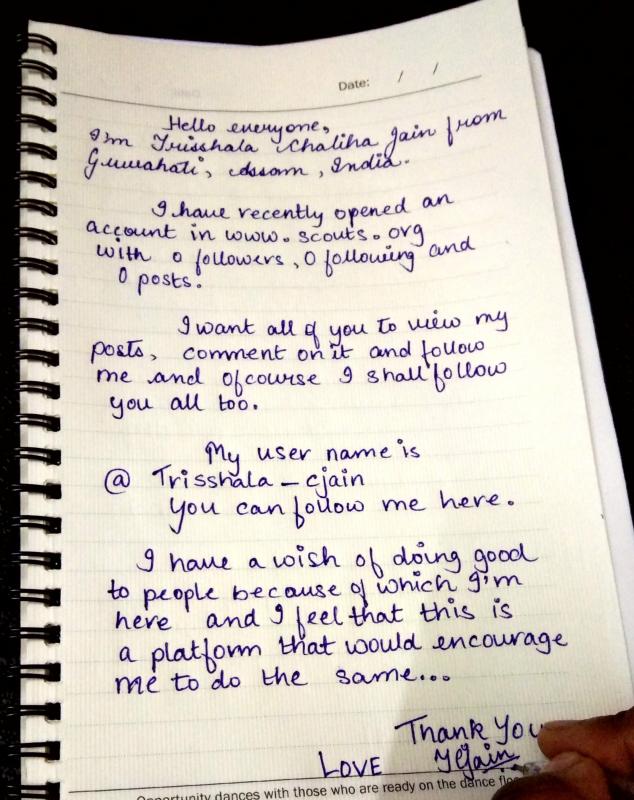 Date: / /
Hello everyone,
I'm Trisshala Chaliha Jain from
Guwahati, Assam, India.
I have recently opened an
account in www.scouts.org
with 0 followers, 0 following and
0 posts.
I want all of you to view my
posts, comment on it and follow
me and ofcourse I shall follow
you all too.
My user name is
@ Trisshala_cjain
You can follow me here.
I have a wish of doing good
to people because of which I'm
here and I feel that this is
a platform that would encourage
me to do the same...
Thank You
LOVE
Opportunity dances with those who are ready on the dance